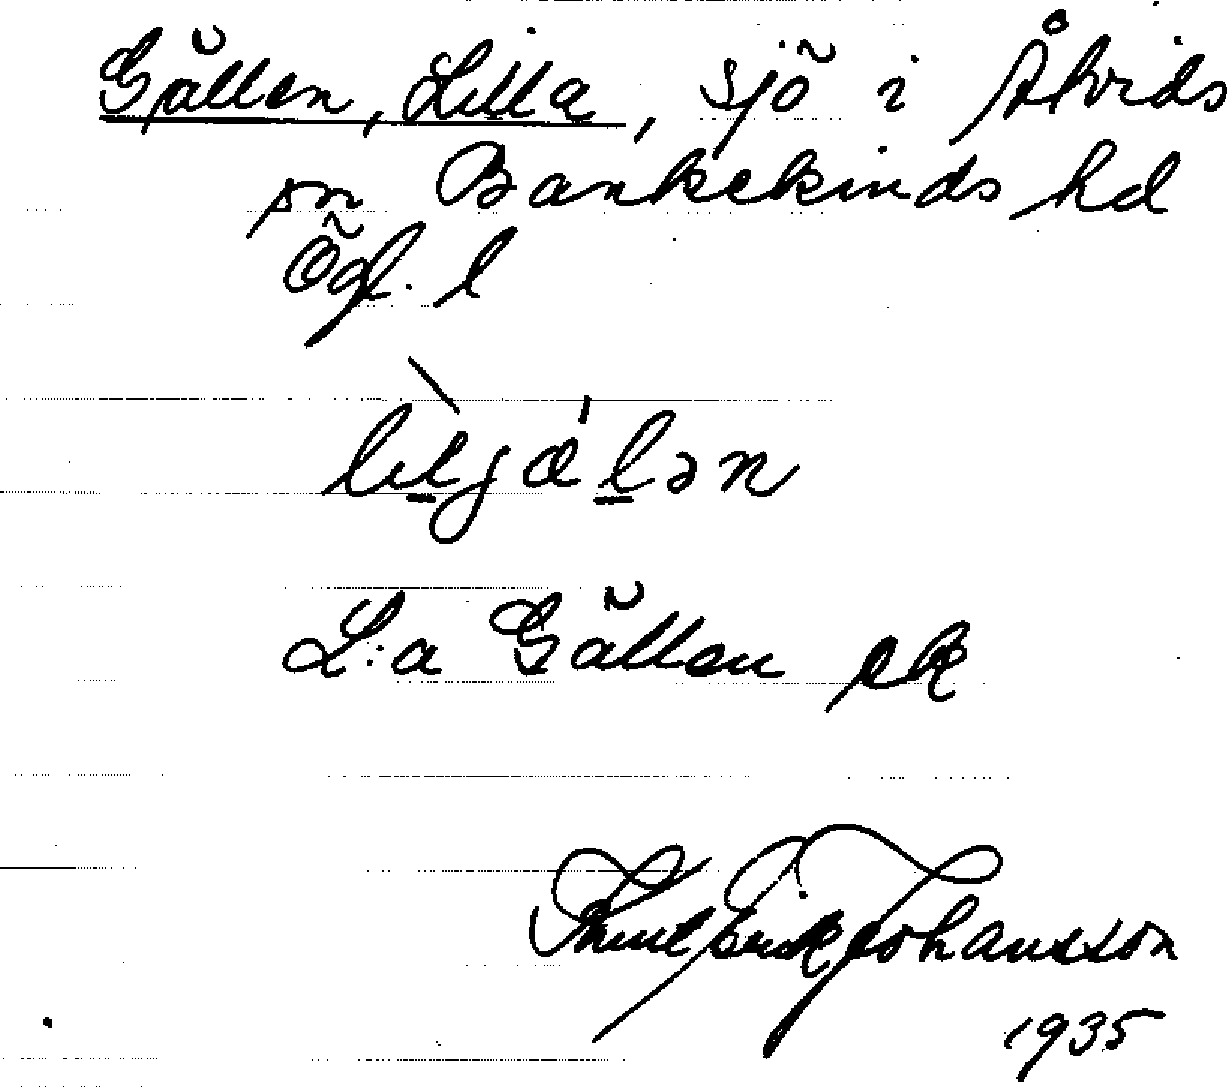 Gällen, Lilla, sjö i Åtvids
sn Bankekinds hd
Ögl. l
lıljä́lən
L:a Gällen ek
Knut Erik Johansson
1935